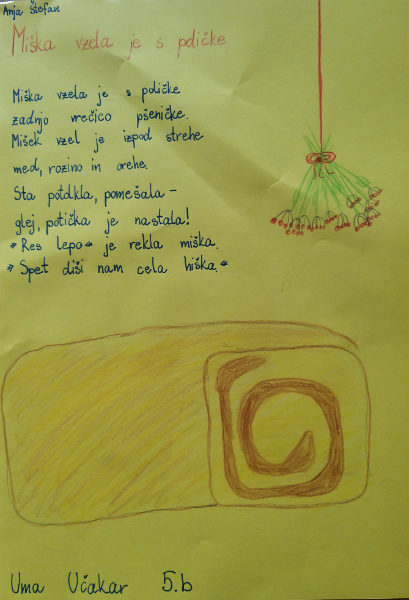 Anja Štefan
Miška vzela je s poličke
Miška vzela je s poličke
zadnjo vrečico pšeničke.
Mišek vzel je izpod strehe
med, rozino in orehe.
Sta potolkla, pomešala –
glej, potička je nastala!
"Res lepo" je rekla miška.
"Spet diši nam cela hiška."
Uma Včakar 5.b